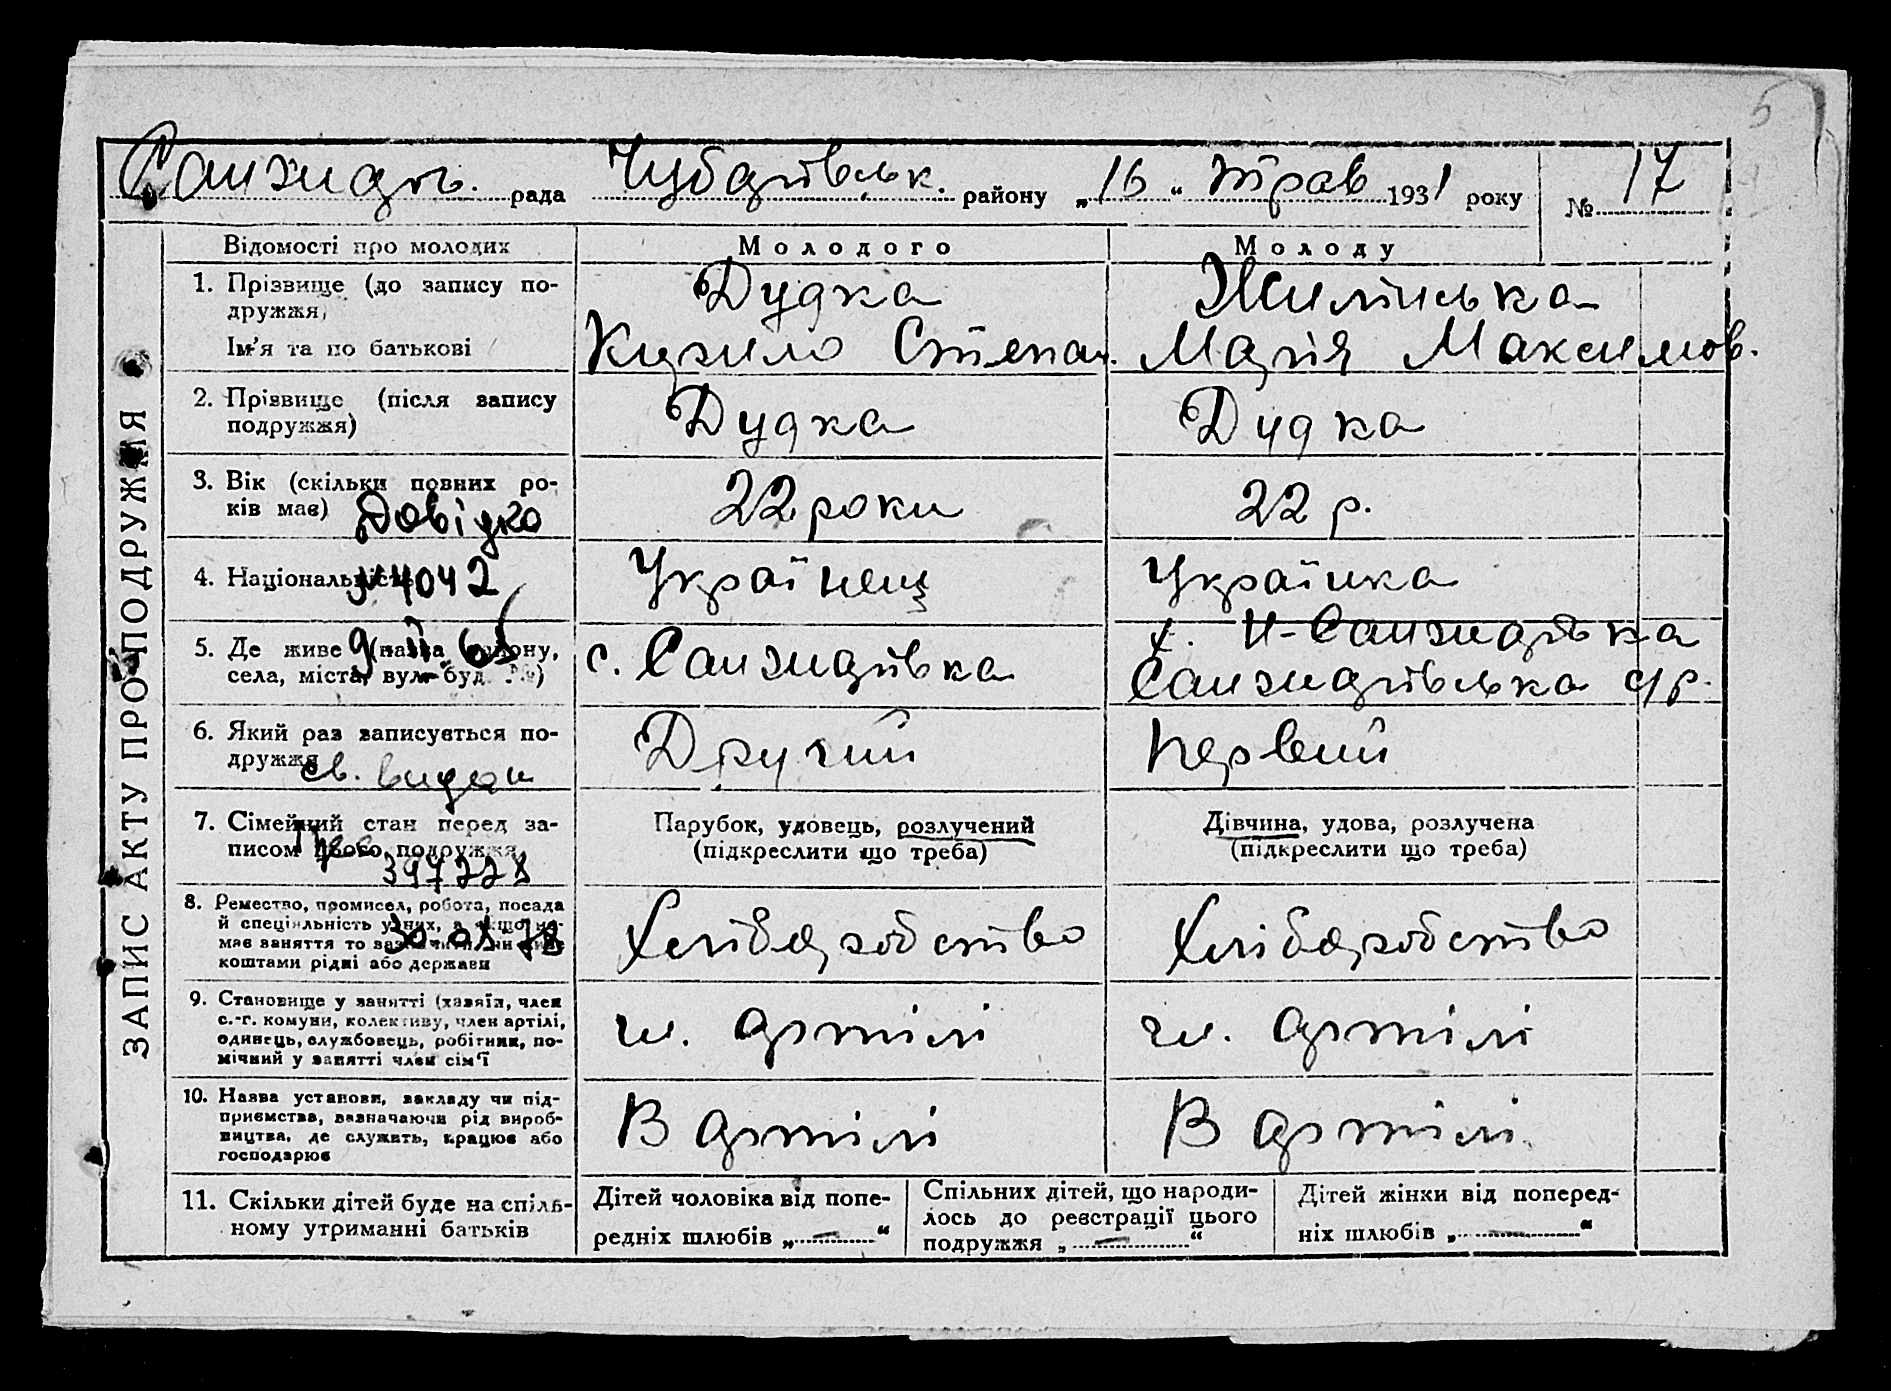 5
Санжарів. рада Чубарівськ. району „16“ трав 1931 року № 17
ЗАПИС АКТУ ПРО ПОДРУЖЖЯ
Відомості про молодих Молодого Молоду
1. Прізвище (до запису по-
дружжя) Дудка Жилінська
Ім'я та по батькові Кирило Степан. Марія Максимов.
2. Прізвище (після запису
подружжя) Дудка Дудка
3. Вік (скільки повних ро-
ків має) 22 роки 22 р.
Довідка
4. Національність Українец Українка
№ 4042
5. Де живе (назва району,
села, міста, вул. буд. №) с. Санжарівка х. Н-Санжарівка
Санжарівська с/р.
6. Який раз записується по-
дружжя Другий Первий
св. видан
7. Сімейний стан перед за-
писом цього подружжя
Парубок, удовець, розлучений
(підкреслити що треба)
Дівчина, удова, розлучена
(підкреслити що треба)
397228
8. Ремество, промисел, робота, посада
й спеціяльність у них, а якщо не-
має заняття то зазначити чиїми живе
коштами рідні або держави
Хліборобство Хліборобство
30 01 78
9. Становище у занятті (хазяїн, член
с.-г. комуни, колективу, член артілі,
одинець, службовець, робітник, по-
мічний у занятті член сім'ї
чл. артілі чл. артілі
10. Назва установи, закладу чи під-
приємства, зазначаючи рід вироб-
ництва, де служить, працює або
господарює
В артілі В артілі
11. Скільки дітей буде на спіль-
ному утриманні батьків
Дітей чоловіка від попе-
редніх шлюбів „—“
Спільних дітей, що народи-
лось до реєстрації цього
подружжя „—“
Дітей жінки від поперед-
ніх шлюбів „—“